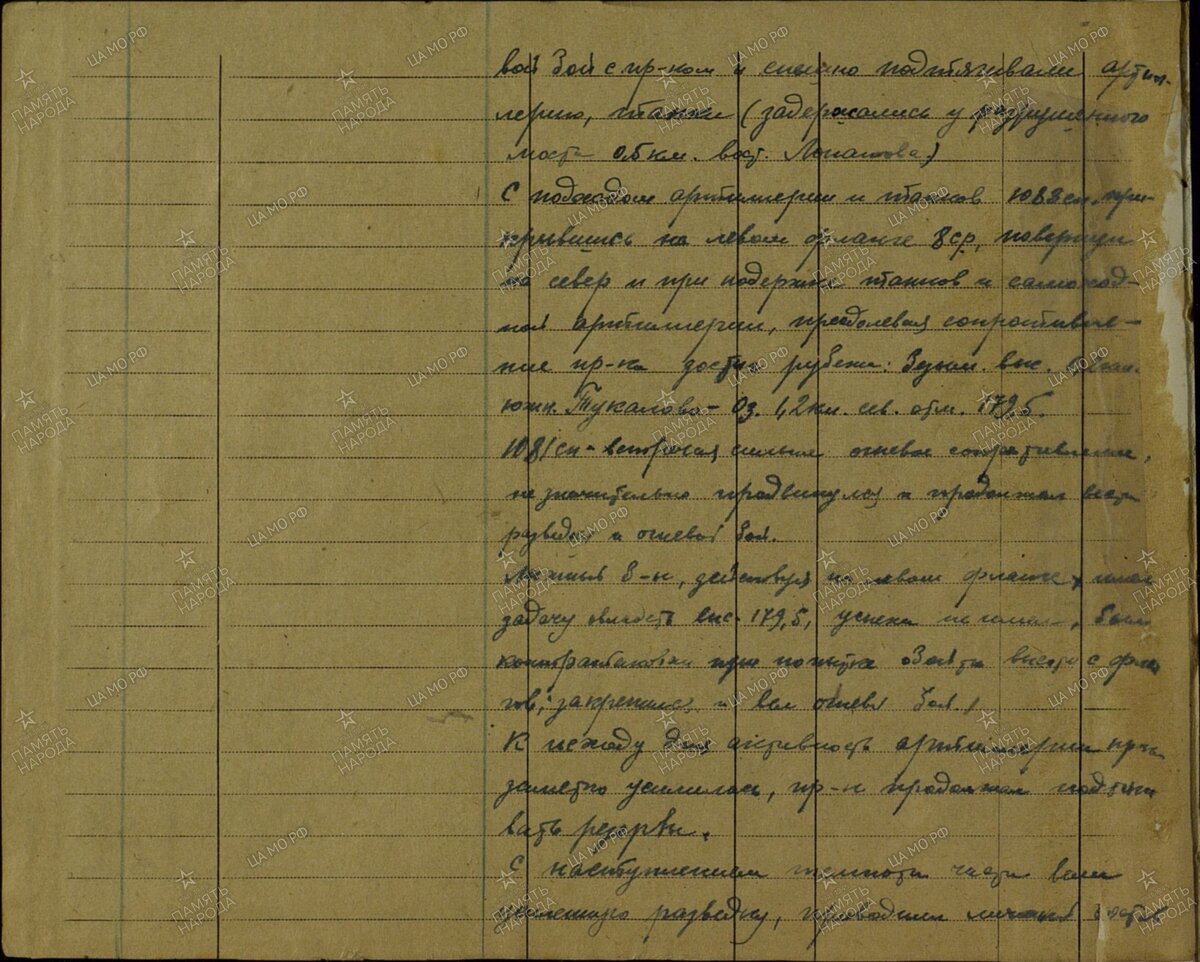 вой бой с пр-ком и спешно подтягивали артил-
лерию, танки (задержались у разрушенного
моста 0,5 км. вост. Лопатова)
С подходом артиллерии и танков 1088 сп. при-
крывшись на левом фланге 8 ср, повернул
на север и при подержке танков и самоход-
ной артиллерии, преодолевая сопротивле-
ние пр-ка достиг рубежа: Безым. выс.
южн. Тукалово - Оз. 1,2 км. сев. отм. 179,5.
1081 сп - встречая сильное огневое сопротивление,
незначительно продвинулся и продолжал вести
разведку и огневой бой.
Лыжный б-н, действуя на левом фланге, имел
задачу овладеть выс. 179,5, успеха не имел, был
контратакован при попытке обойти высоту с флан
гов, закрепился и вел огневой бой.
К исходу дня активность артиллерии пр-ка
заметно усилилась, пр-к продолжал подтяги
вать резервы.
С наступлением темноты части вели
усиленную разведку, приводили личный состав